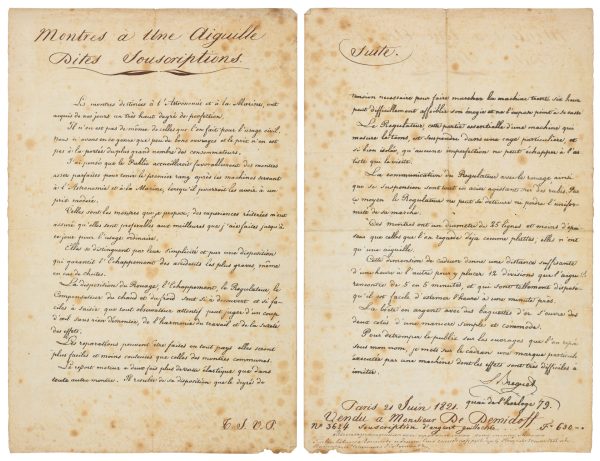 Montres à Une Aiguille
Dites Souscriptions.
Les montres destinées à l'Astronomie et à la Marine, ont
acquis de nos jours un très haut degré de perfection.
Il n'en est pas de même de celles que l'on fait pour l'usage civil.
Nous n'avons en ce genre que peu de bons ouvrages et le prix n'en est
pas à la portée du plus grand nombre des consommateurs.
J'ai pensé que le Public accueillerait favorablement des montres
assez parfaites pour tenir le premier rang après les machines servant
à l'Astronomie et à la Marine, lorsqu'il pourrait les avoir à un
prix modéré.
Telles sont les montres que je propose; des expériences réitérées m'ont
assuré qu'elles sont préférables aux meilleures que j'aie faites jusqu'à
ce jour pour l'usage ordinaire.
Elles se distinguent par leur simplicité et par une disposition
qui garantit l'Echappement des accidents les plus graves, même
en cas de chutes.
La disposition du Rouage, l'Echappement, le Régulateur, le
Compensateur du chaud et du froid sont si à découvert et si fa-
ciles à saisir que tout observateur attentif peut juger d'un coup
d'œil sans rien démonter, de l'harmonie du travail et de la sureté
des effets.
Les réparations peuvent être faites en tout pays elles seront
plus faciles et moins couteuses que celles des montres communes.
Le ressort moteur a deux fois plus de tours élastique que dans
toute autre montre. Il résulte de sa disposition que le degré de
T. S. V. P.
Suite.
tension nécessaire pour faire marcher la machine trente six heures
peut difficilement affaiblir son énergie et ne l'expose point à se casser
Le Régulateur, cette partie essentielle d'une machine qui
mesure le tems, est suspendu dans une cage particulière, et
si bien isolée, qu'aucune imperfection ne peut échapper à l'ar-
tiste qui la visite.
La communication du Régulateur avec le rouage ainsi
que sa suspension sont tout en acier agissant sur des rubis. Par
ce moyen le Régulateur ne peut la détruire ou perdre l'unifor-
mité de sa marche.
Ces montres ont un diamètre de 25 lignes et moins d'épais-
seur que celles que l'on regarde déjà comme plattes, elles n'ont
qu'une aiguille.
Cette dimension de cadran donne une distance suffisante
d'une heure à l'autre pour y placer 12 divisions que l'aiguille
rencontre de 5 en 5 minutes, et qui sont tellement disposées
qu'il est facile d'estimer l'heure à une minute près.
La boite en argent avec des baguettes d'or s'ouvre des
deux cotés d'une manière simple et commode.
Pour détromper le public sur les ouvrages que l'on répand
sous mon nom, je mets sur le cadran une marque particulière
exécutée par une machine dont les effets sont très difficiles à
imiter.
Breguet
quai de l'horloge 79.
Paris 21 Juin 1821.
Vendu à Monsieur De Demidoff
No 3624 souscription d'argent guilloché F. 600.-